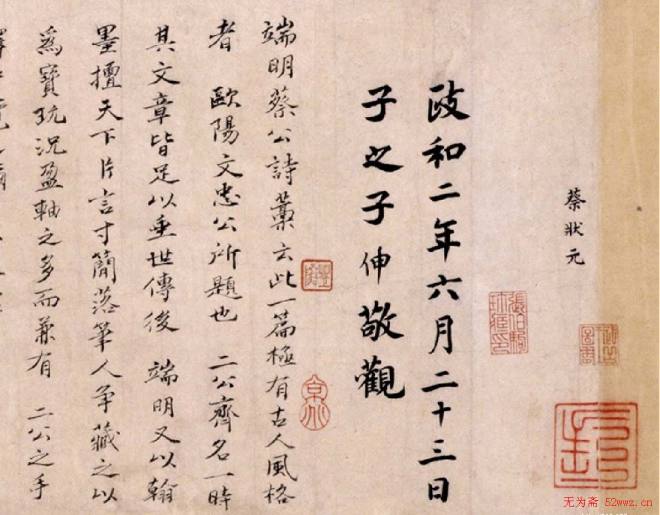 蔡狀元
政和二年六月二十三日
子之子伸敬觀
端明蔡公詩藁云此一篇極有古人風格
者 歐陽文忠公所題也 二公齊名一時
其文章皆足以垂世傳後 端明又以翰
墨擅天下片言寸簡落筆人爭藏之以
為寶玩況盈軸之多而兼有 二公之手
无为斋 52wwz.cn